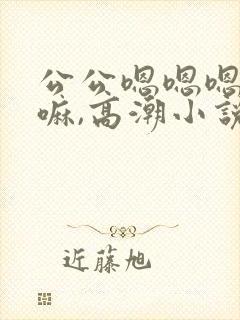 公公嗯嗯嗯
嘛,高潮小说
近藤旭